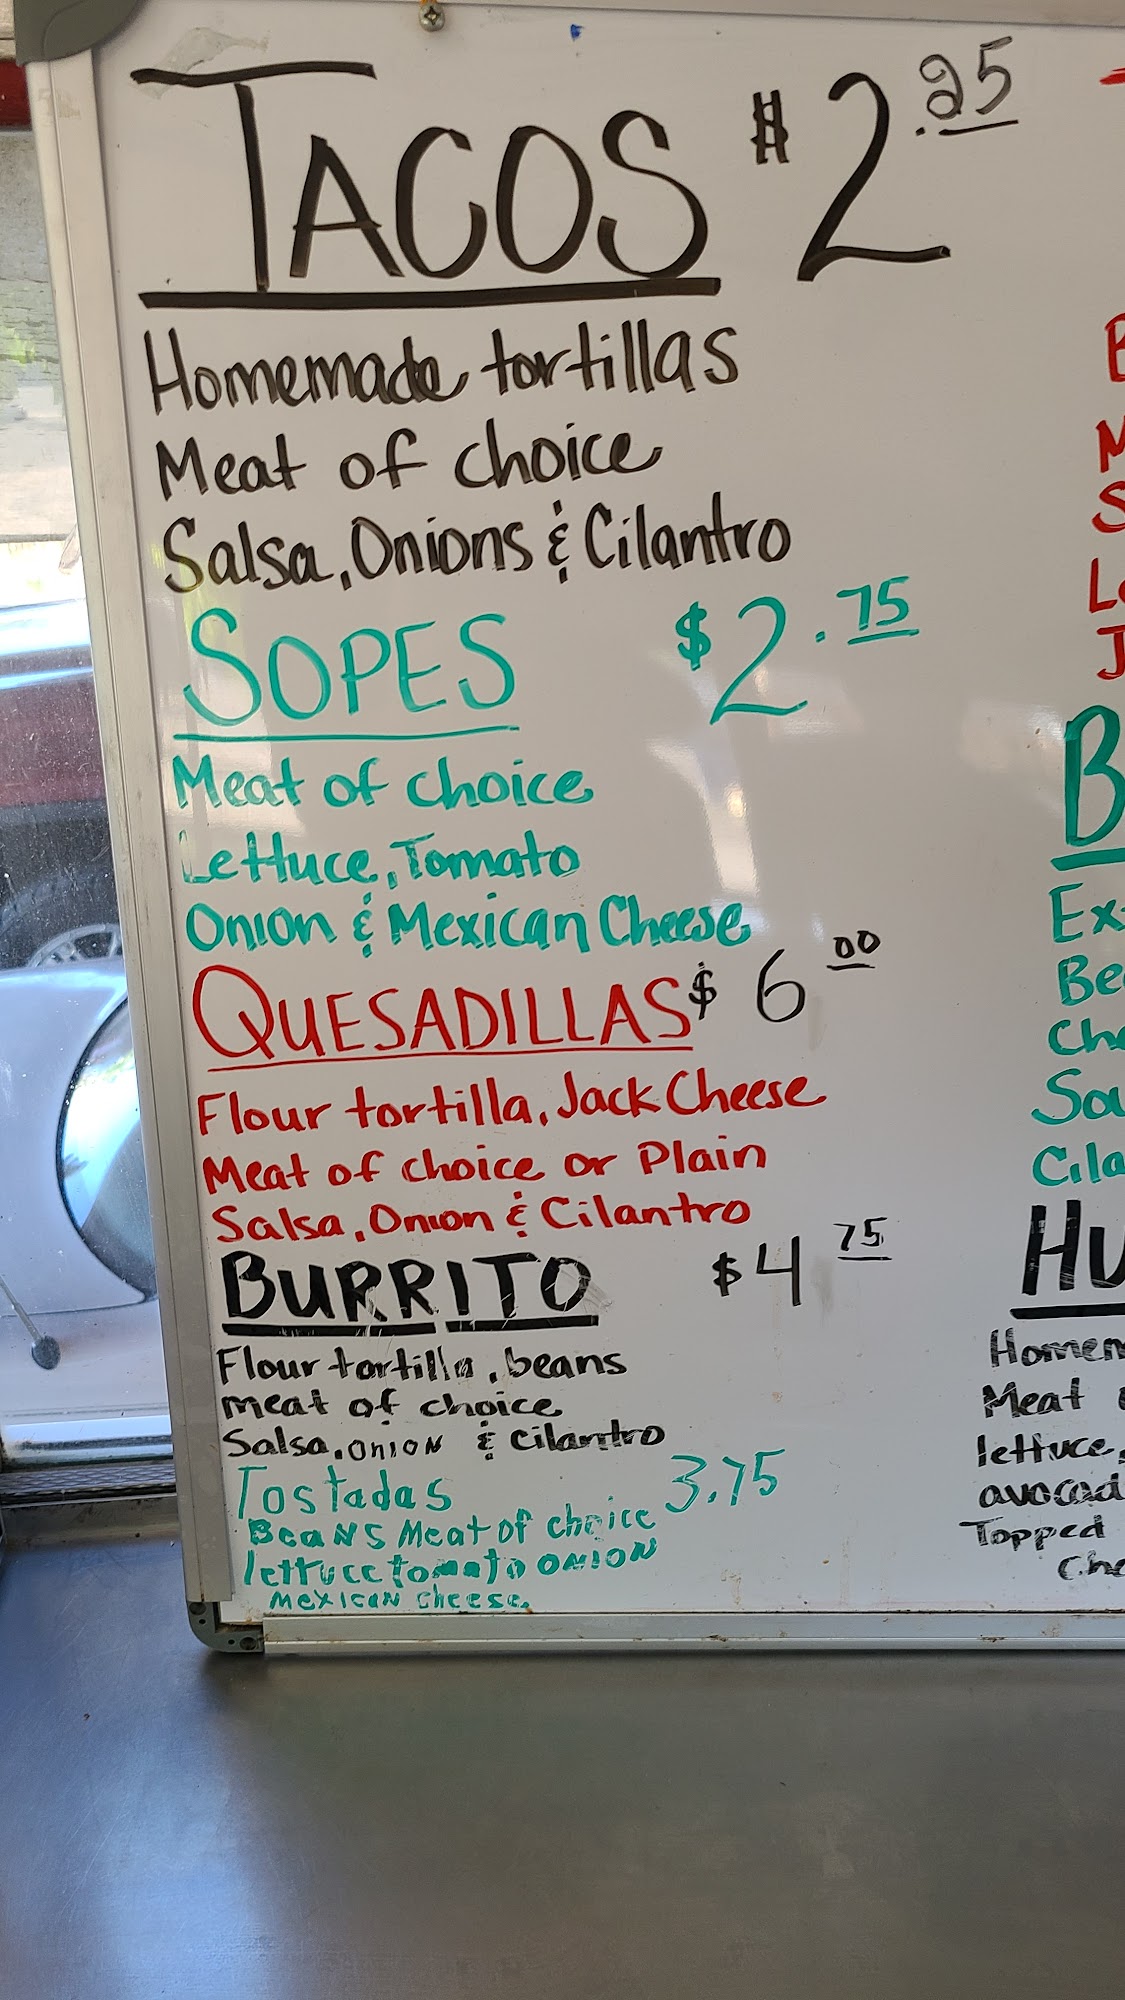 TACOS $2.25
Homemade tortillas
Meat of choice
Salsa, Onions & Cilantro
SOPES $2.75
Meat of choice
Lettuce, Tomato
Onion & Mexican Cheese
QUESADILLAS $6 00
Flour tortilla, Jack Cheese
Meat of choice or Plain
Salsa, Onion & Cilantro
BURRITO $4 75
Flour tortilla, beans
meat of choice
Salsa, onion & cilantro
Tostadas 3.75
Beans Meat of choice
lettuce tomato onion
mexican cheese.
Meat
lettuce,
Topped